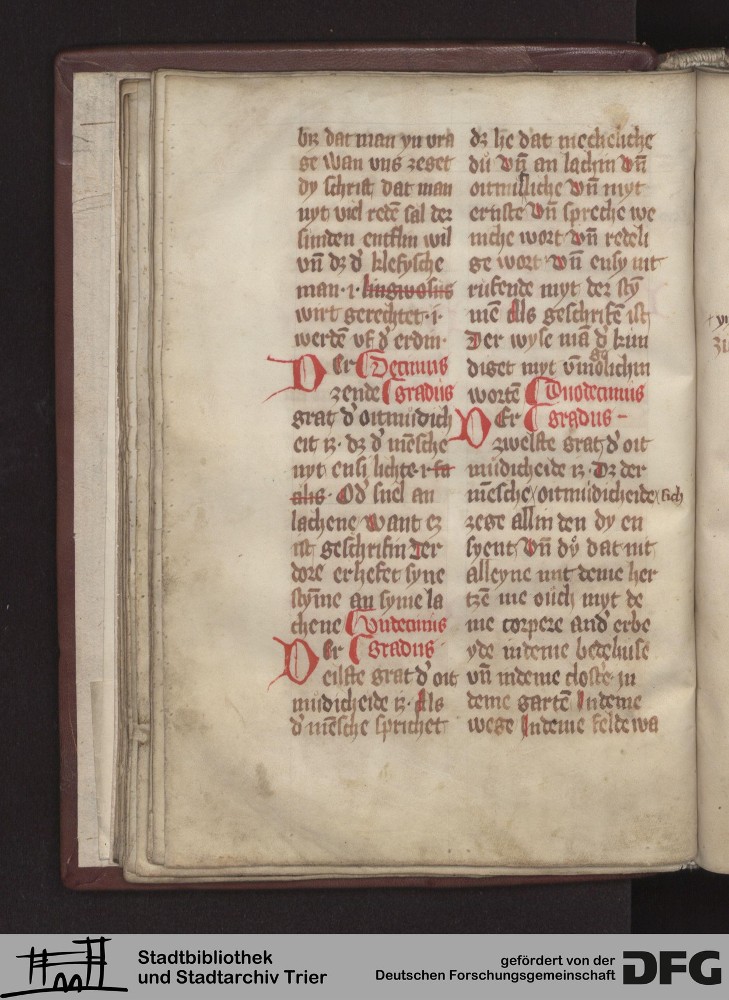 biz dat man yn vra
ge wan vns zeget
dy schrift dat man
nyt viel redē sal der
sunden entflin wil
vn̄ dz d' kleffysche
man · i · linguosus
wirt gerechtet · i ·
werdē vf d' erdin ·
Der Decimus
zende gradus
grat d' oitmudich
eit iz · dz d' mēsche
nyt ensi lichte · i · fa
cilis · Od' snel an
lachene want ez
ist geschrifin Der
dore erhefet syne
stȳme an syme la
chene Vndecimus
Der gradus
eilfte grat d' oit
mudicheide iz · Als
d' mēsche sprichet
dz he dat mecheliche
du vn̄ an lachin vn̄
oitmudliche vn̄ myt
ernste vn̄ spreche we
niche wort vn̄ redeli
ge wort · vn̄ ensy nit
rufende myt der stȳ
men Als geschrifē ist
Der wyse mā d' kun
diget myt vīnolichin
wortē Duodecimus
Der gradus
zwelfte grat d' oit
mudicheide iz · Dz der
mēsche oitmudicheide sich
zege allin den dy en
syent vn̄ dy dat nit
alleyne mit deme her
tzē me ouch myt de
me corpere and' erbe
yde indeme bedehuse
vn̄ indeme closte · in
deme gartē Indeme
wege Indeme felde wa
Stadtbibliothek
und Stadtarchiv Trier
gefördert von der
Deutschen Forschungsgemeinschaft
DFG